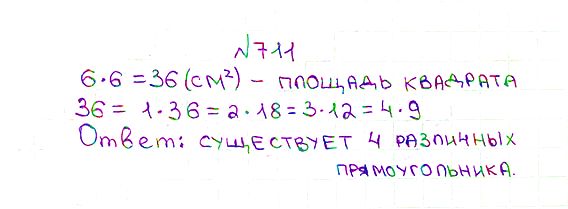 №711
6·6=36(см²) – площадь квадрата
36 = 1·36 = 2·18 = 3·12 = 4·9
Ответ: существует 4 различных
прямоугольника.